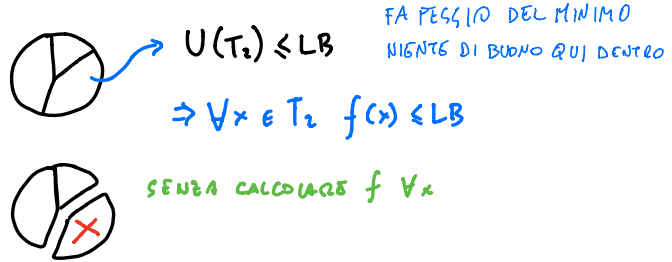 FA PEGGIO DEL MINIMO
U(T₂) ≤ LB
NIENTE DI BUONO QUI DENTRO
⇒ ∀x ∈ T₂ f(x) ≤ LB
SENZA CALCOLARE f ∀x
X